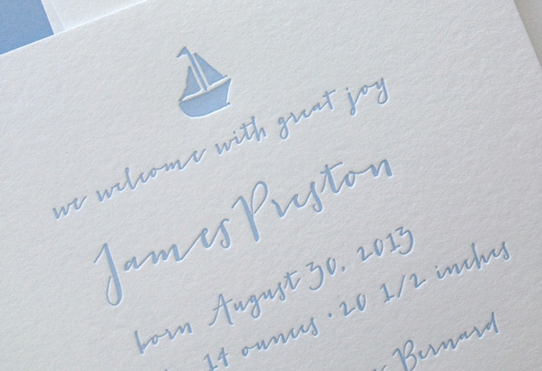 we welcome with great joy
James Preston
born August 30, 2013
14 ounces · 20 1/2 inches
Bernard